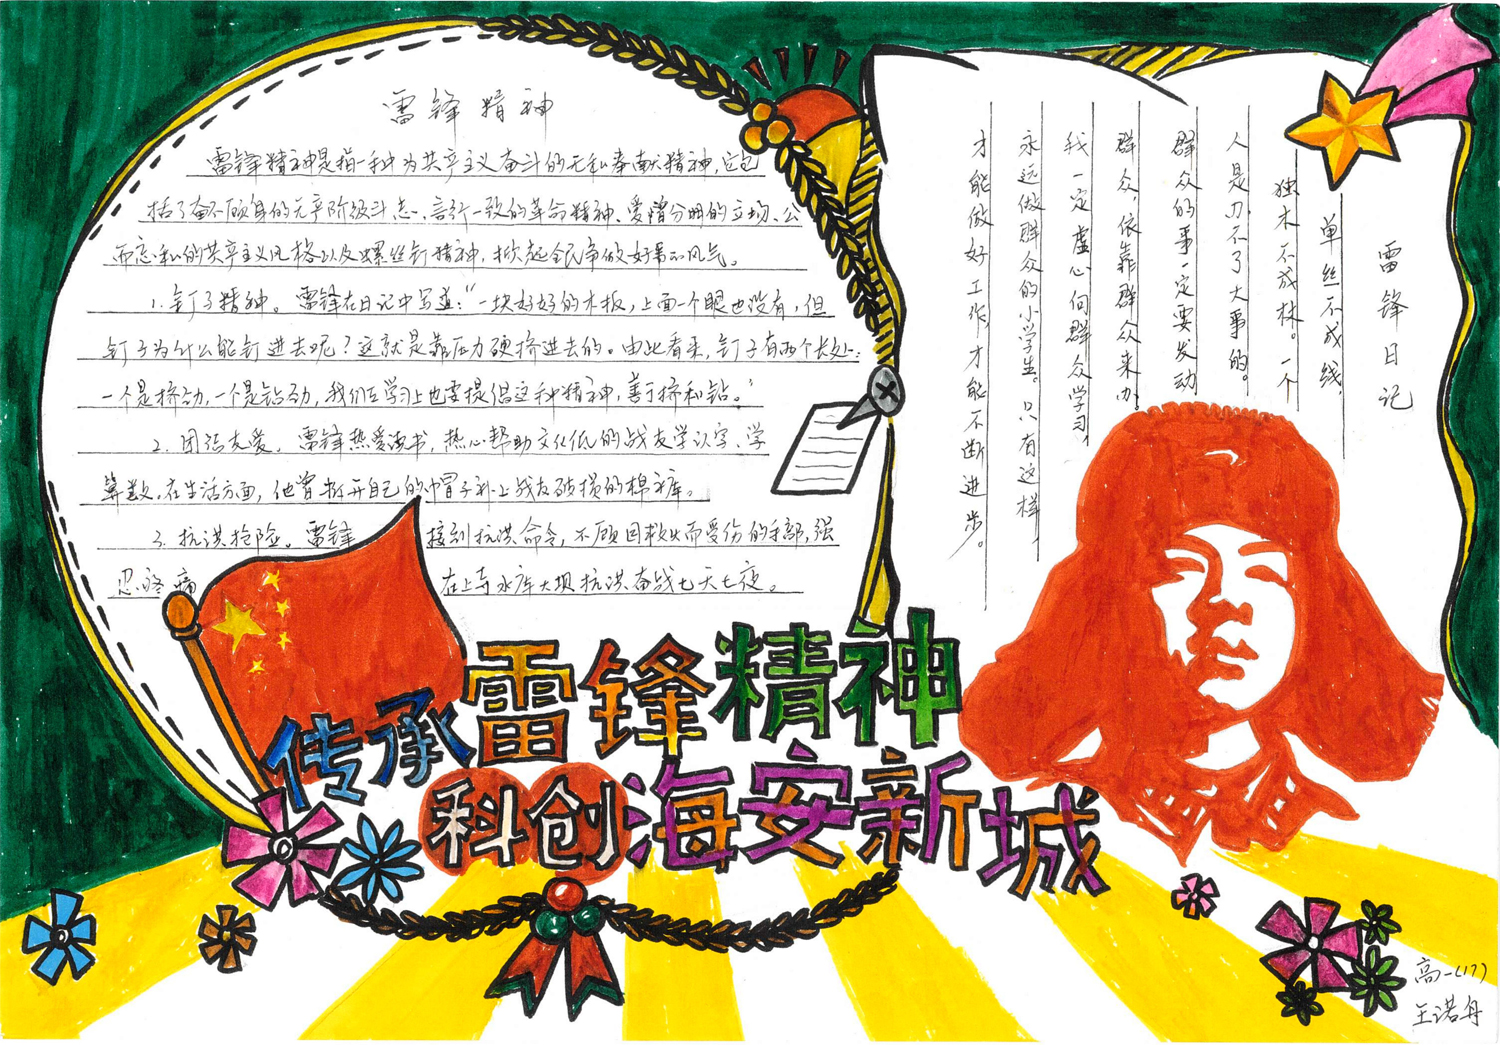 雷锋精神
雷锋精神是指一种为共产主义奋斗的无私奉献精神,它包
括了奋不顾身的无产阶级斗志、言行一致的革命精神、爱憎分明的立场、公
而忘私的共产主义风格以及螺丝钉精神,掀起全民争做好事的风气。
1.钉子精神。雷锋在日记中写道:“一块好好的木板,上面一个眼也没有,但
钉子为什么能钉进去呢?这就是靠压力硬挤进去的。由此看来,钉子有两个长处:
一个是挤劲,一个是钻劲,我们在学习上也要提倡这种精神,善于挤和钻。”
2.团结友爱。雷锋热爱读书,热心帮助文化低的战友学认字、学
算数,在生活方面,他曾拆开自己的帽子补上战友破损的棉裤。
3.抗洪抢险。雷锋接到抗洪命令,不顾因救火而受伤的手部,强
忍疼痛在上寺水库大坝抗洪奋战七天七夜。
雷锋日记
单丝不成线,
独木不成林。一个
人是办不了大事的。
群众的事一定要发动
群众,依靠群众来办。
我一定虚心向群众学习,
永远做群众的小学生。只有这样
才能做好工作,才能不断进步。
传承雷锋精神
科创海安新城
高一(17)
王诺舟